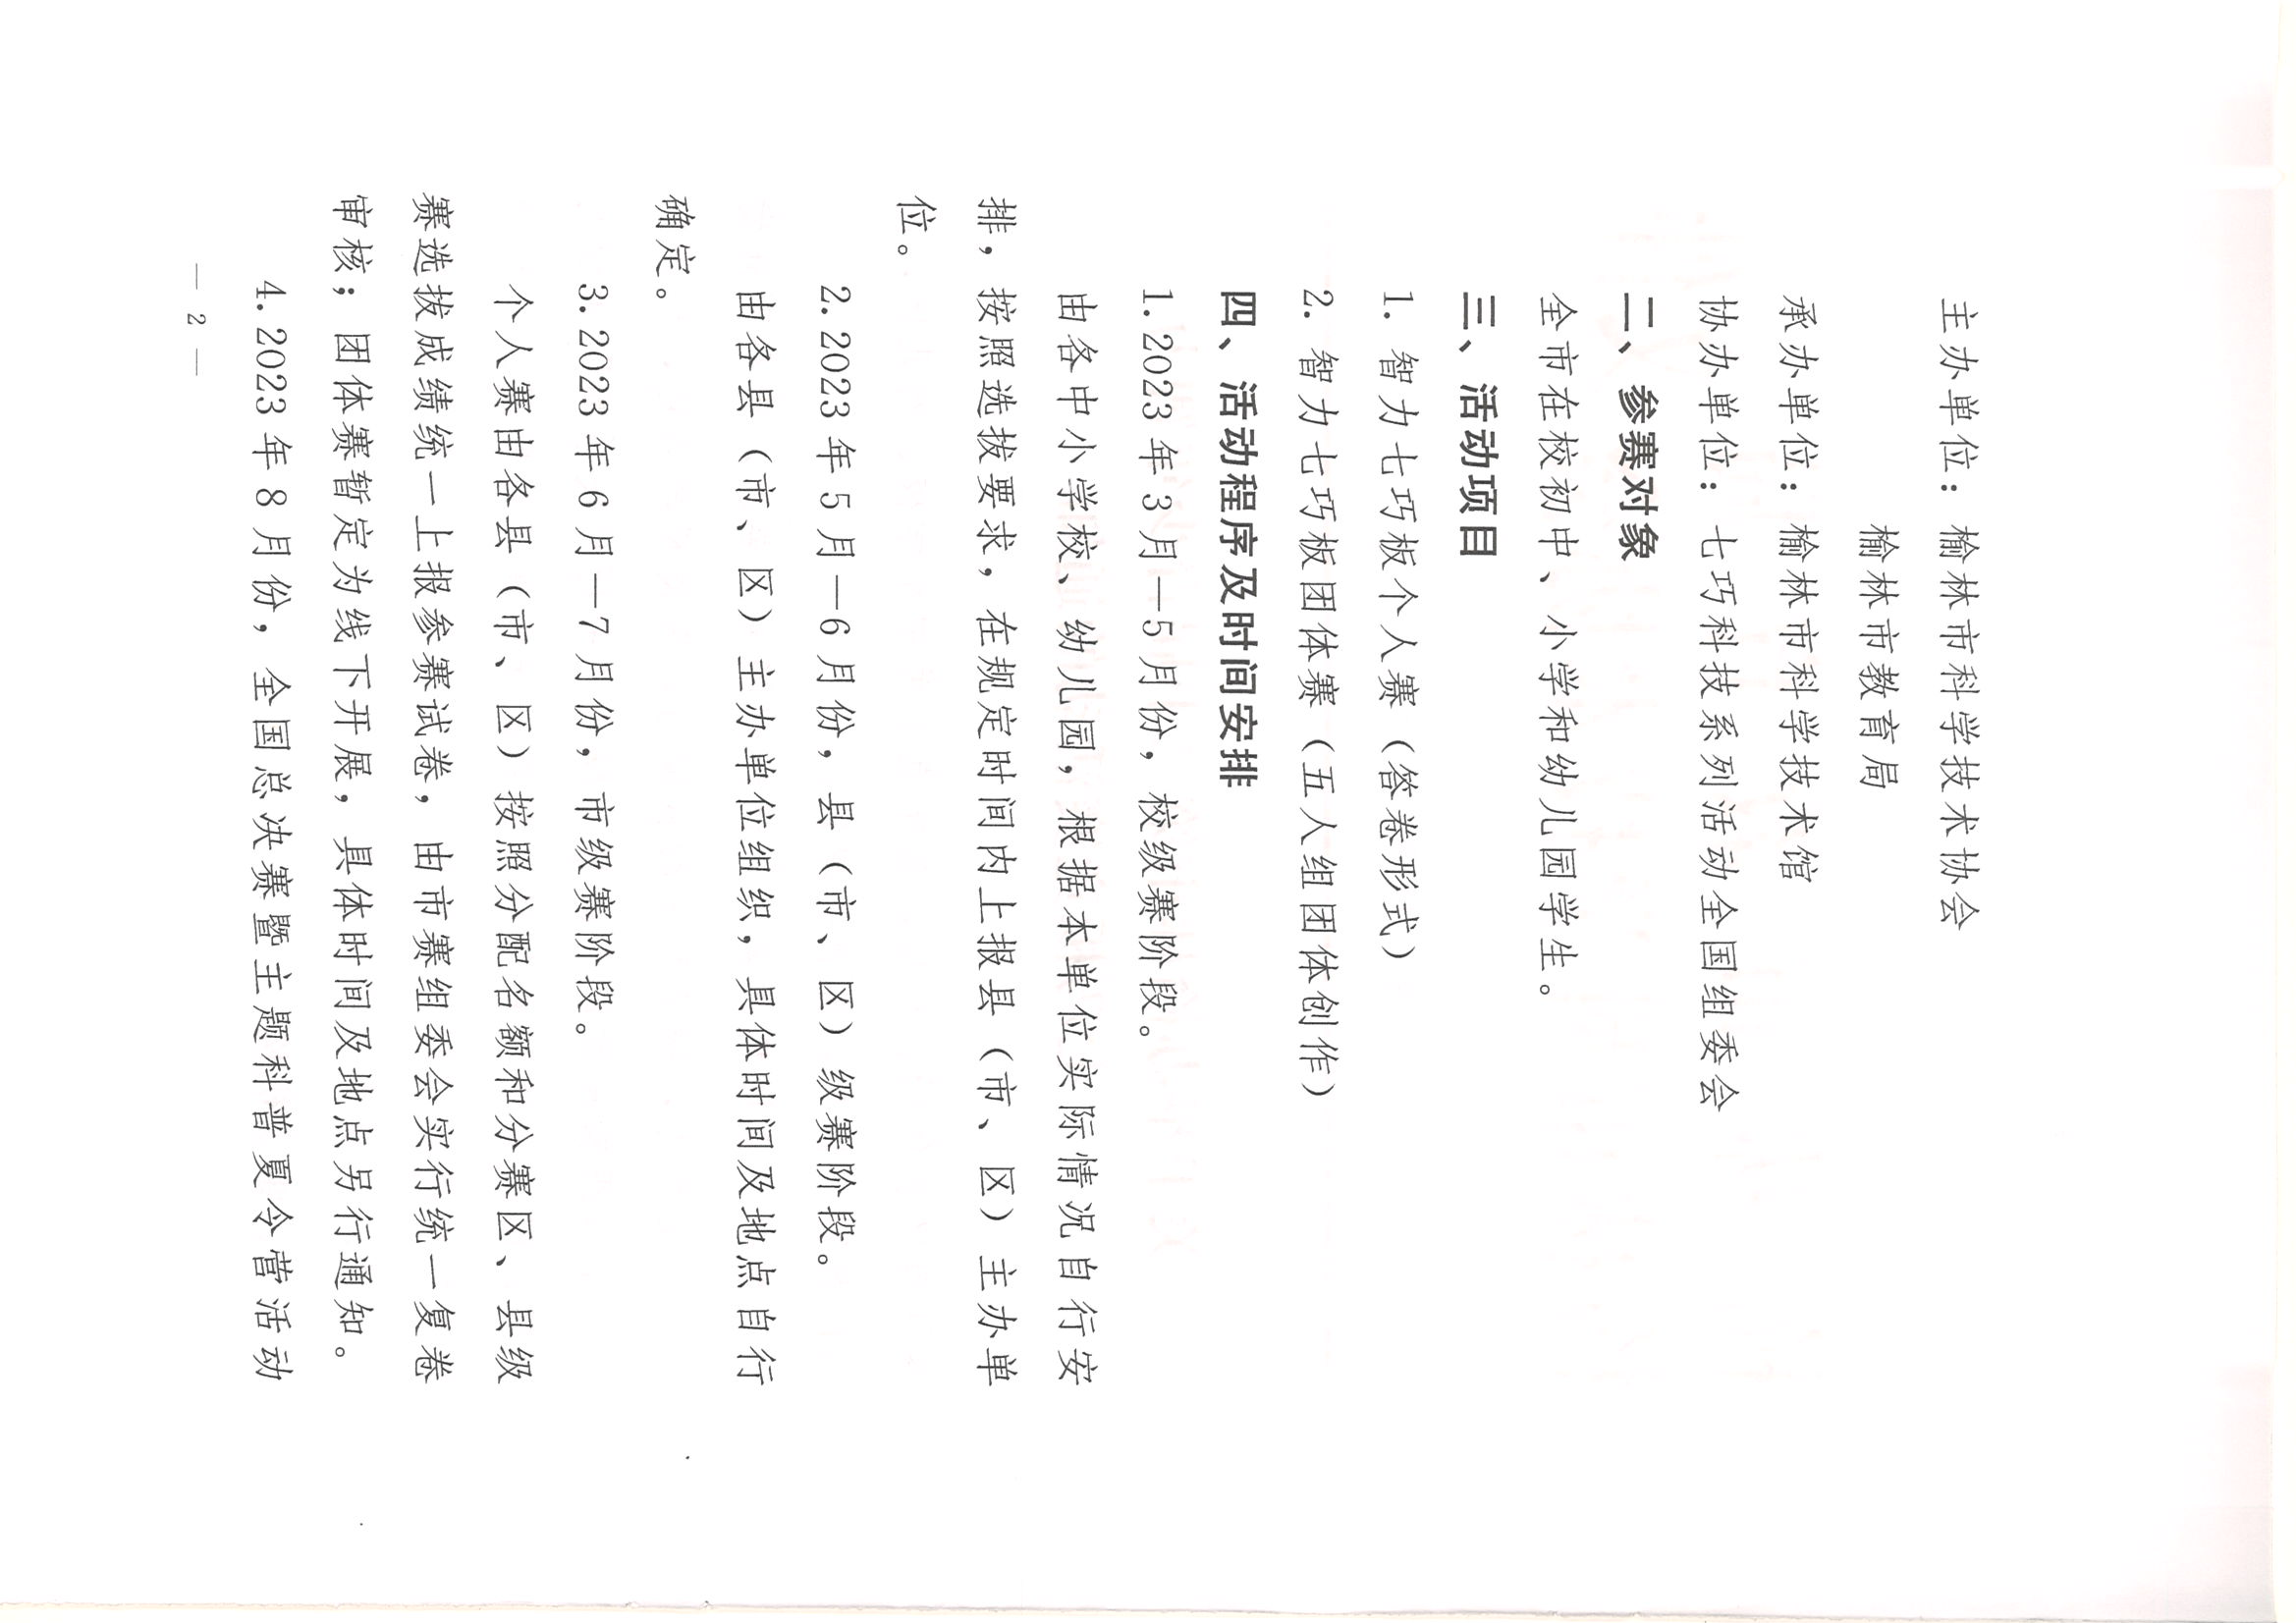 主办单位：榆林市科学技术协会
榆林市教育局
承办单位：榆林市科学技术馆
协办单位：七巧科技系列活动全国组委会
二、参赛对象
全市在校初中、小学和幼儿园学生。
三、活动项目
1. 智力七巧板个人赛（答卷形式）
2. 智力七巧板团体赛（五人组团体创作）
四、活动程序及时间安排
1.2023年3月—5月份，校级赛阶段。
由各中小学校、幼儿园，根据本单位实际情况自行安
排，按照选拔要求，在规定时间内上报县（市、区）主办单
位。
2.2023年5月—6月份，县（市、区）级赛阶段。
由各县（市、区）主办单位组织，具体时间及地点自行
确定。
3.2023年6月—7月份，市级赛阶段。
个人赛由各县（市、区）按照分配名额和分赛区、县级
赛选拔成绩统一上报参赛试卷，由市赛组委会实行统一复卷
审核；团体赛暂定为线下开展，具体时间及地点另行通知。
4.2023年8月份，全国总决赛暨主题科普夏令营活动
— 2 —